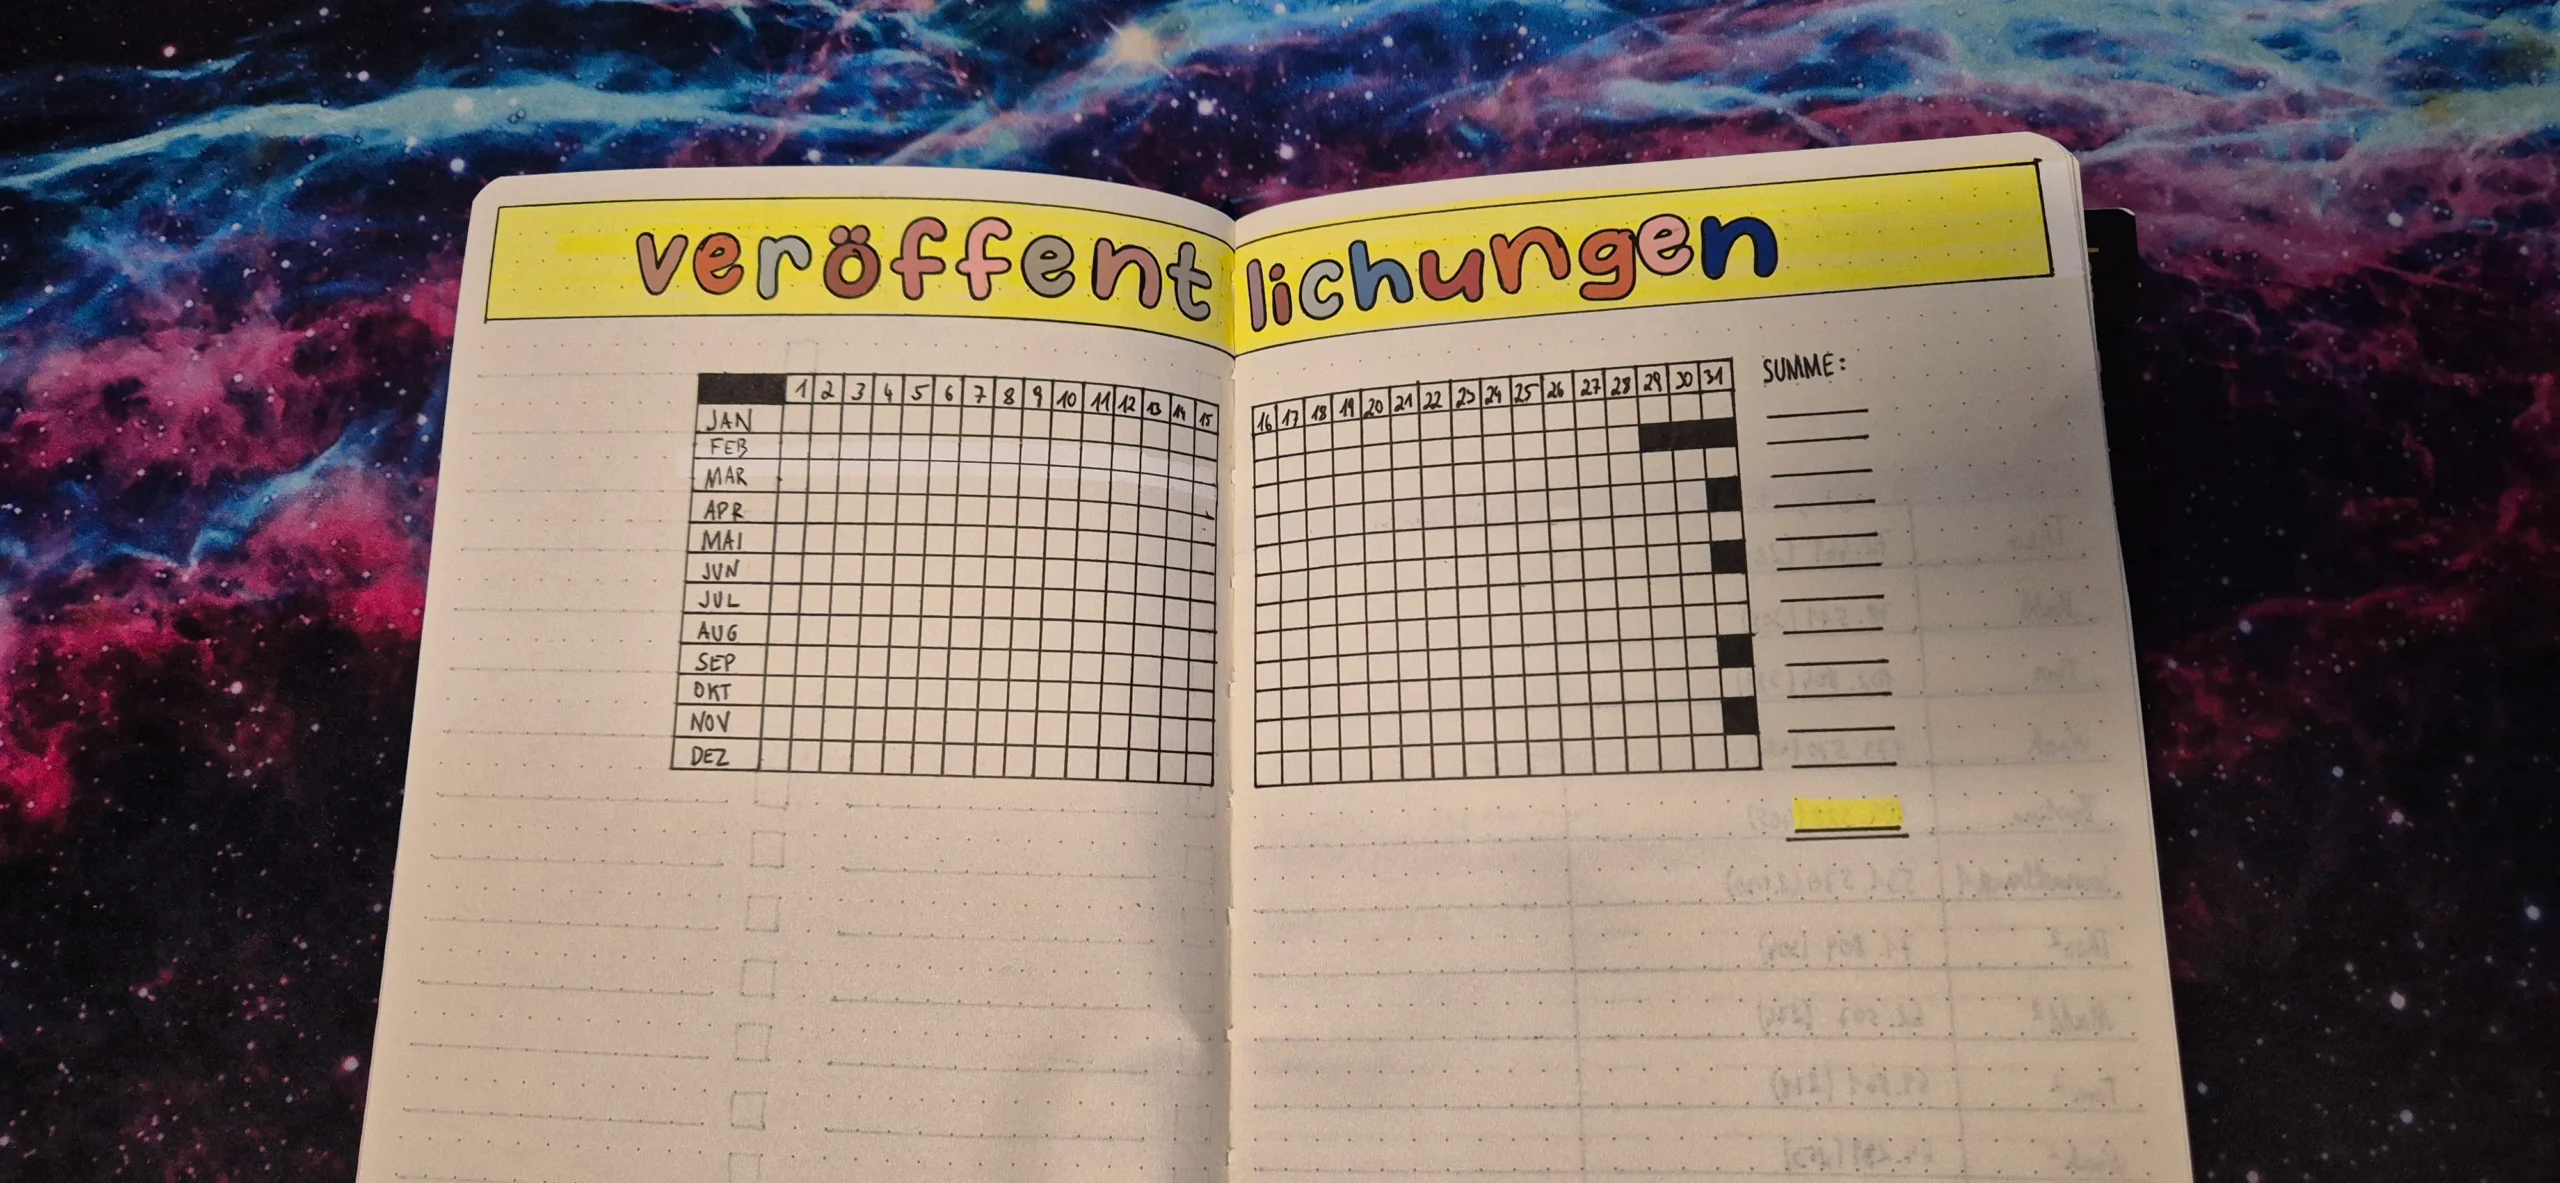 veröffentlichungen
1 2 3 4 5 6 7 8 9 10 11 12 13 14 15 16 17 18 19 20 21 22 23 24 25 26 27 28 29 30 31 SUMME:
JAN
FEB
MAR
APR
MAI
JUN
JUL
AUG
SEP
OKT
NOV
DEZ